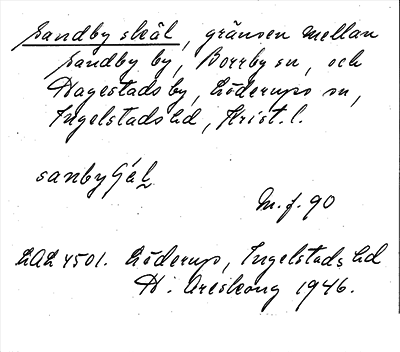 Sandby skäl, gränsen mellan
Sandby by, Borrby sn, och
Hagestads by, Löderups sn,
Ingelstads hd, Krist. l.
sanby
M. f. 90
LAL 4501. Löderup, Ingelstads hd
H. Areskoug 1946.